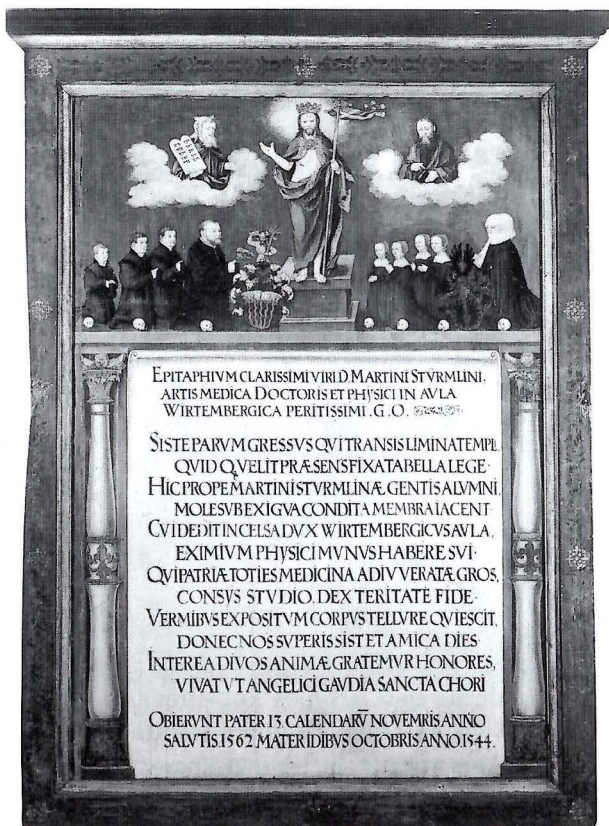 EPITAPHIVM CLARISSIMI VIRI D. MARTINI STVRMLINI,
ARTIS MEDICA DOCTORIS ET PHYSICI IN AVLA
WIRTEMBERGICA PERITISSIMI . G. O.
SISTE PARVM GRESSVS QVI TRANSIS LIMINA TEMPL
QVID QVELIT PRÆSENS FIXA TABELLA LEGE
HIC PROPE MARTINI STVRMLINÆ GENTIS ALVMNI,
MOLE SVB EXIGVA CONDITA MEMBRA IACENT
CVI DEDIT IN CELSA DVX WIRTEMBERGICVS AVLA,
EXIMIVM PHYSICI MVNVS HABERE SVI
QVI PATRIÆ TOTIES MEDICINA ADIVVERAT ÆGROS,
CONSVS STVDIO. DEXTERITATE FIDE
VERMIBVS EXPOSITVM CORPVS TELLVRE QVIESCIT,
DONEC NOS SVPERIS SISTET AMICA DIES
INTEREA DIVOS ANIMÆ GRATEMVR HONORES,
VIVAT VT ANGELICI GAVDIA SANCTA CHORI
OBIERVNT PATER 13. CALENDARV̄ NOVEMRIS ANNO
SALVTIS. 1562 MATER IDIBVS OCTOBRIS ANNO. 1544.